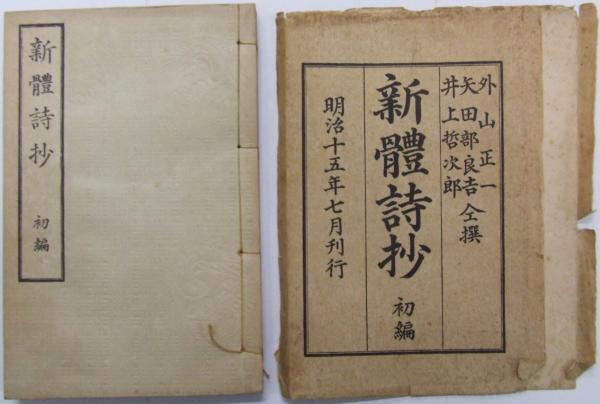 新體詩抄 初編
外山正一
矢田部良吉
井上哲次郎
仝撰
新體詩抄 初編
明治十五年七月刊行